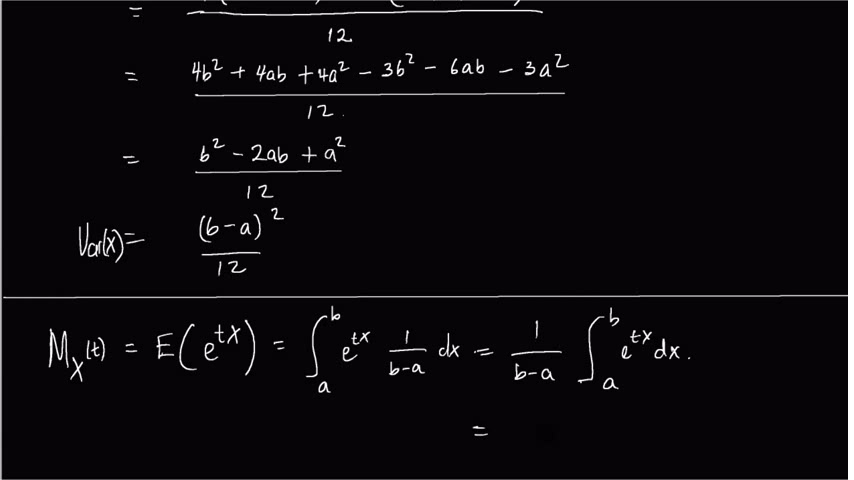 = 12
= 4b² + 4ab + 4a² - 3b² - 6ab - 3a² / 12.
= b² - 2ab + a² / 12
Var(x) = (b-a)² / 12
M_X(t) = E(e^{tX}) = ∫_a^b e^{tx} 1/(b-a) dx = 1/(b-a) ∫_a^b e^{tx} dx.
=